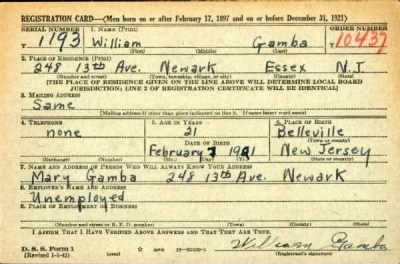 REGISTRATION CARD—(Men born on or after February 17, 1897 and on or before December 31, 1921)
SERIAL NUMBER 1. NAME (Print) ORDER NUMBER
1193 William Gamba 10437
(First) (Middle) (Last)
2. PLACE OF RESIDENCE (Print)
248 13th Ave. Newark Essex N.J
(Number and street) (Town, township, village, or city) (County) (State)
[THE PLACE OF RESIDENCE GIVEN ON THE LINE ABOVE WILL DETERMINE LOCAL BOARD
JURISDICTION; LINE 2 OF REGISTRATION CERTIFICATE WILL BE IDENTICAL]
3. MAILING ADDRESS
Same
[Mailing address if other than place indicated on line 2. If same insert word same]
4. TELEPHONE 5. AGE IN YEARS 6. PLACE OF BIRTH
none 21 Belleville
DATE OF BIRTH (Town or county)
February 7 1921 New Jersey
(Exchange) (Number) (Mo.) (Day) (Yr.) (State or country)
7. NAME AND ADDRESS OF PERSON WHO WILL ALWAYS KNOW YOUR ADDRESS
Mary Gamba 248 13th Ave. Newark
8. EMPLOYER'S NAME AND ADDRESS
Unemployed
9. PLACE OF EMPLOYMENT OR BUSINESS
(Number and street or R. F. D. number) (Town) (County) (State)
I AFFIRM THAT I HAVE VERIFIED ABOVE ANSWERS AND THAT THEY ARE TRUE.
D. S. S. Form 1 GPO William Gamba
(Revised 1-1-42) (Registrant's signature)